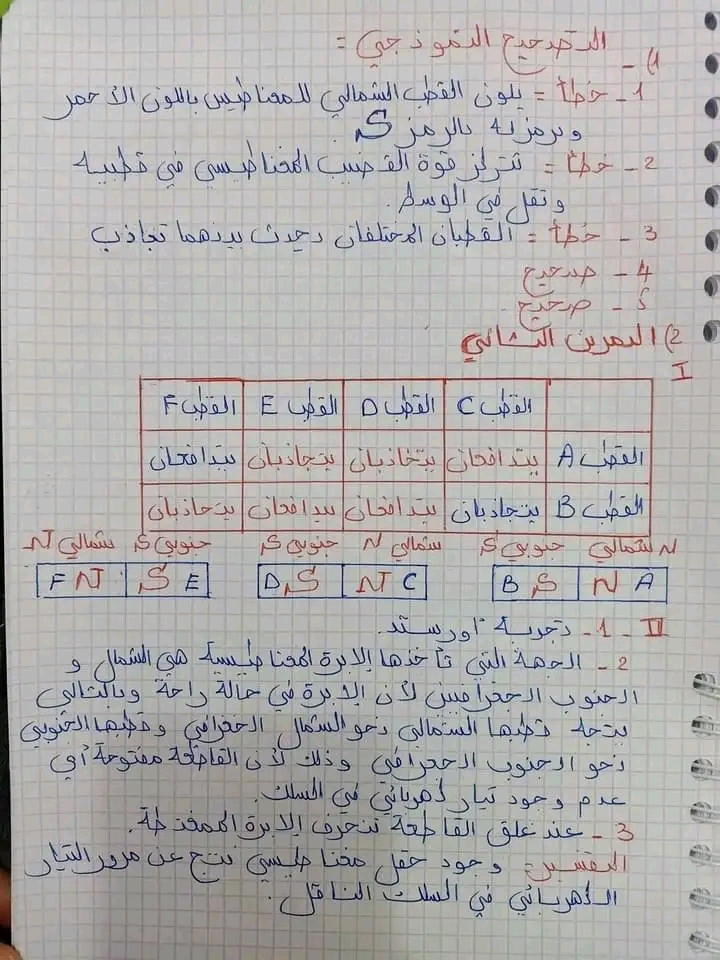 التصحيح النموذجي =
1) -
1 - خطأ = يلون القطب الشمالي للمغناطيس باللون الأحمر
ويرمز له بالرمز S.
2 - خطأ = تتركز قوة القضيب المغناطيسي في قطبيه
وتقل في الوسط.
3 - خطأ = القطبان المختلفان يحدث بينهما تجاذب
4 - صحيح
5 - صحيح.
2) التمرين الثاني
I
القطب C القطب D القطب E القطب F
القطب A يتدافعان يتجاذبان يتجاذبان يتدافعان
القطب B يتجاذبان يتدافعان يتدافعان يتجاذبان
شمالي N جنوبي S شمالي N جنوبي S جنوبي S شمالي N
F N S E D S N C B S N A
II - 1 - تجربة أورستد.
2 - الجهة التي تأخذها الإبرة المغناطيسية هي الشمال و
الجنوب الجغرافيين لأن الإبرة في حالة راحة وبالتالي
يتجه قطبها الشمالي نحو الشمال الجغرافي وقطبها الجنوبي
نحو الجنوب الجغرافي وذلك لأن القاطعة مفتوحة أي
عدم وجود تيار كهربائي في السلك.
3 - عند غلق القاطعة تنحرف الإبرة الممغنطة.
التفسير = وجود حقل مغناطيسي نتج عن مرور التيار
الكهربائي في السلك الناقل.